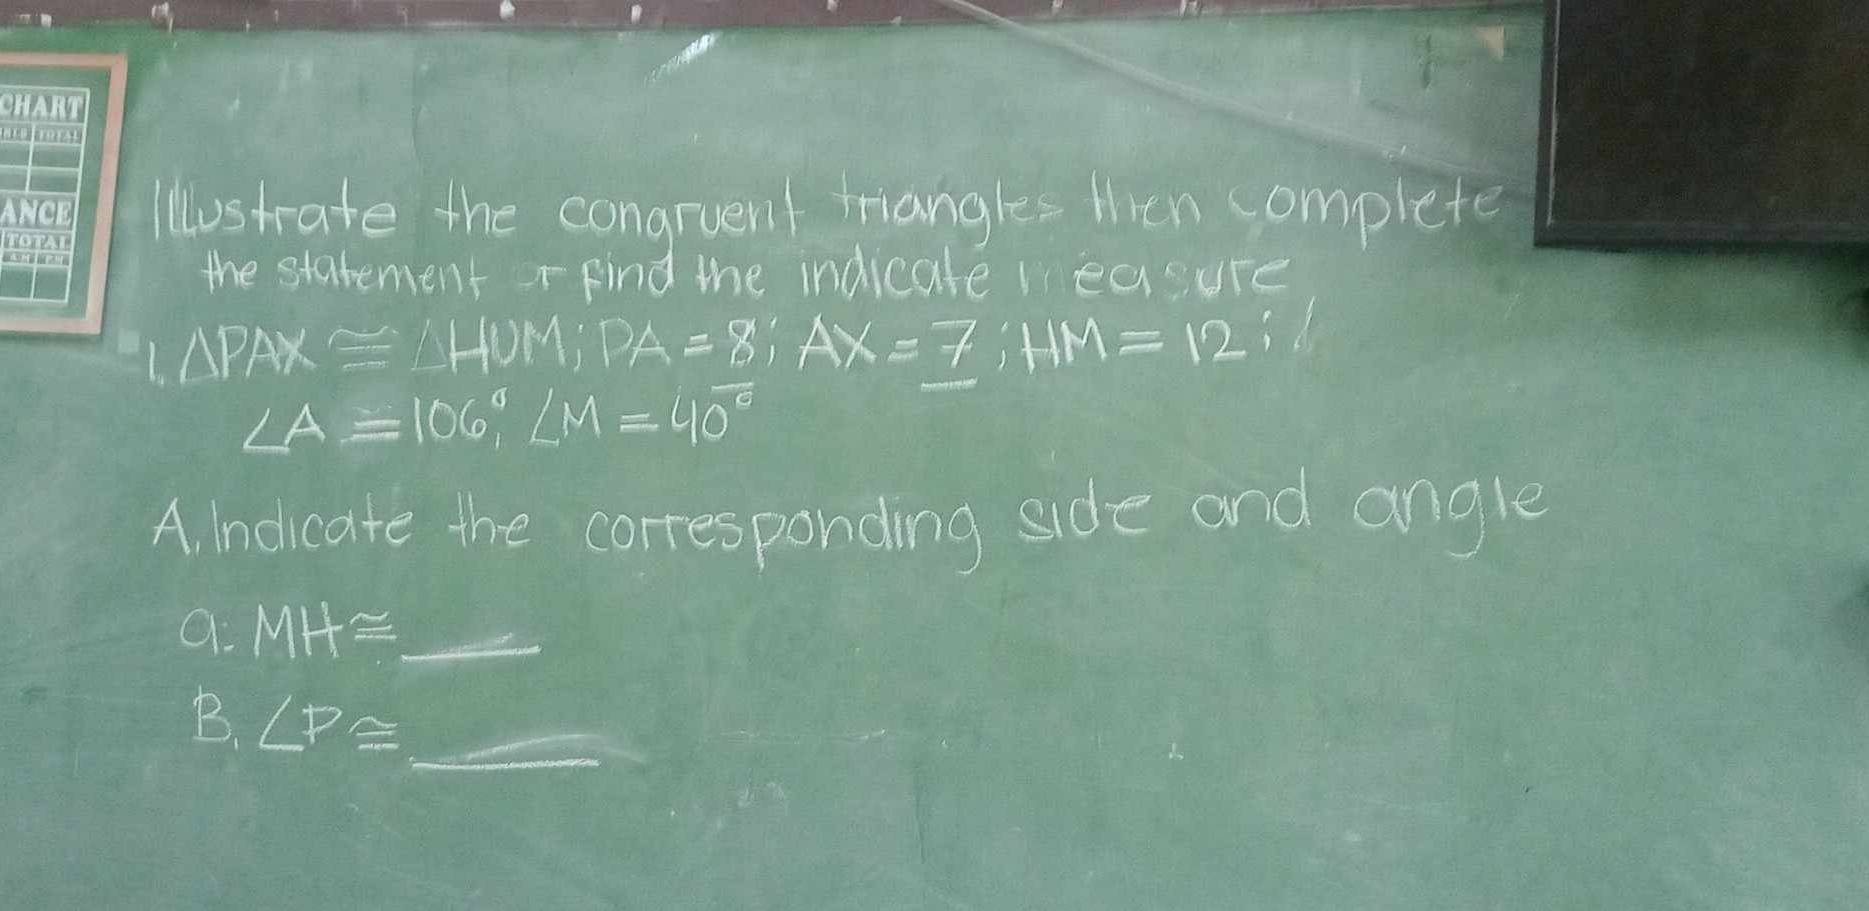 CHART
TOTAL
ANCE
TOTAL
AM PM
Illustrate the congruent triangles then complete
the statement or find the indicate measure
1. △PAX ≅ △HUM; PA = 8; AX = 7; HM = 12;
∠A = 106°; ∠M = 40°
A. Indicate the corresponding side and angle
a. MH ≅ ____
B. ∠P ≅ ____